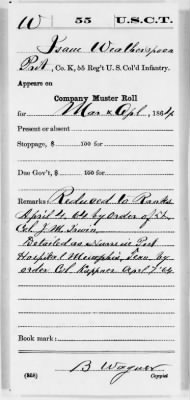 W | 55 | U.S.C.T.
Isaac Weatherspoon
Pvt, Co. K, 55 Reg't U. S. Col'd Infantry.
Appears on
Company Muster Roll
for Mar & Apl, 1864
Present or absent
Stoppage, $ 100 for
Due Gov't, $ 100 for
Remarks: Reduced to Ranks
April 4, 64 by order of Lt
Col. J. M. Irwin,
Detailed as Nurse in Post
Hospital Memphis, Tenn by
order Col. Kappner April 7, 64
Book mark:
B Wagner
(358) Copyist